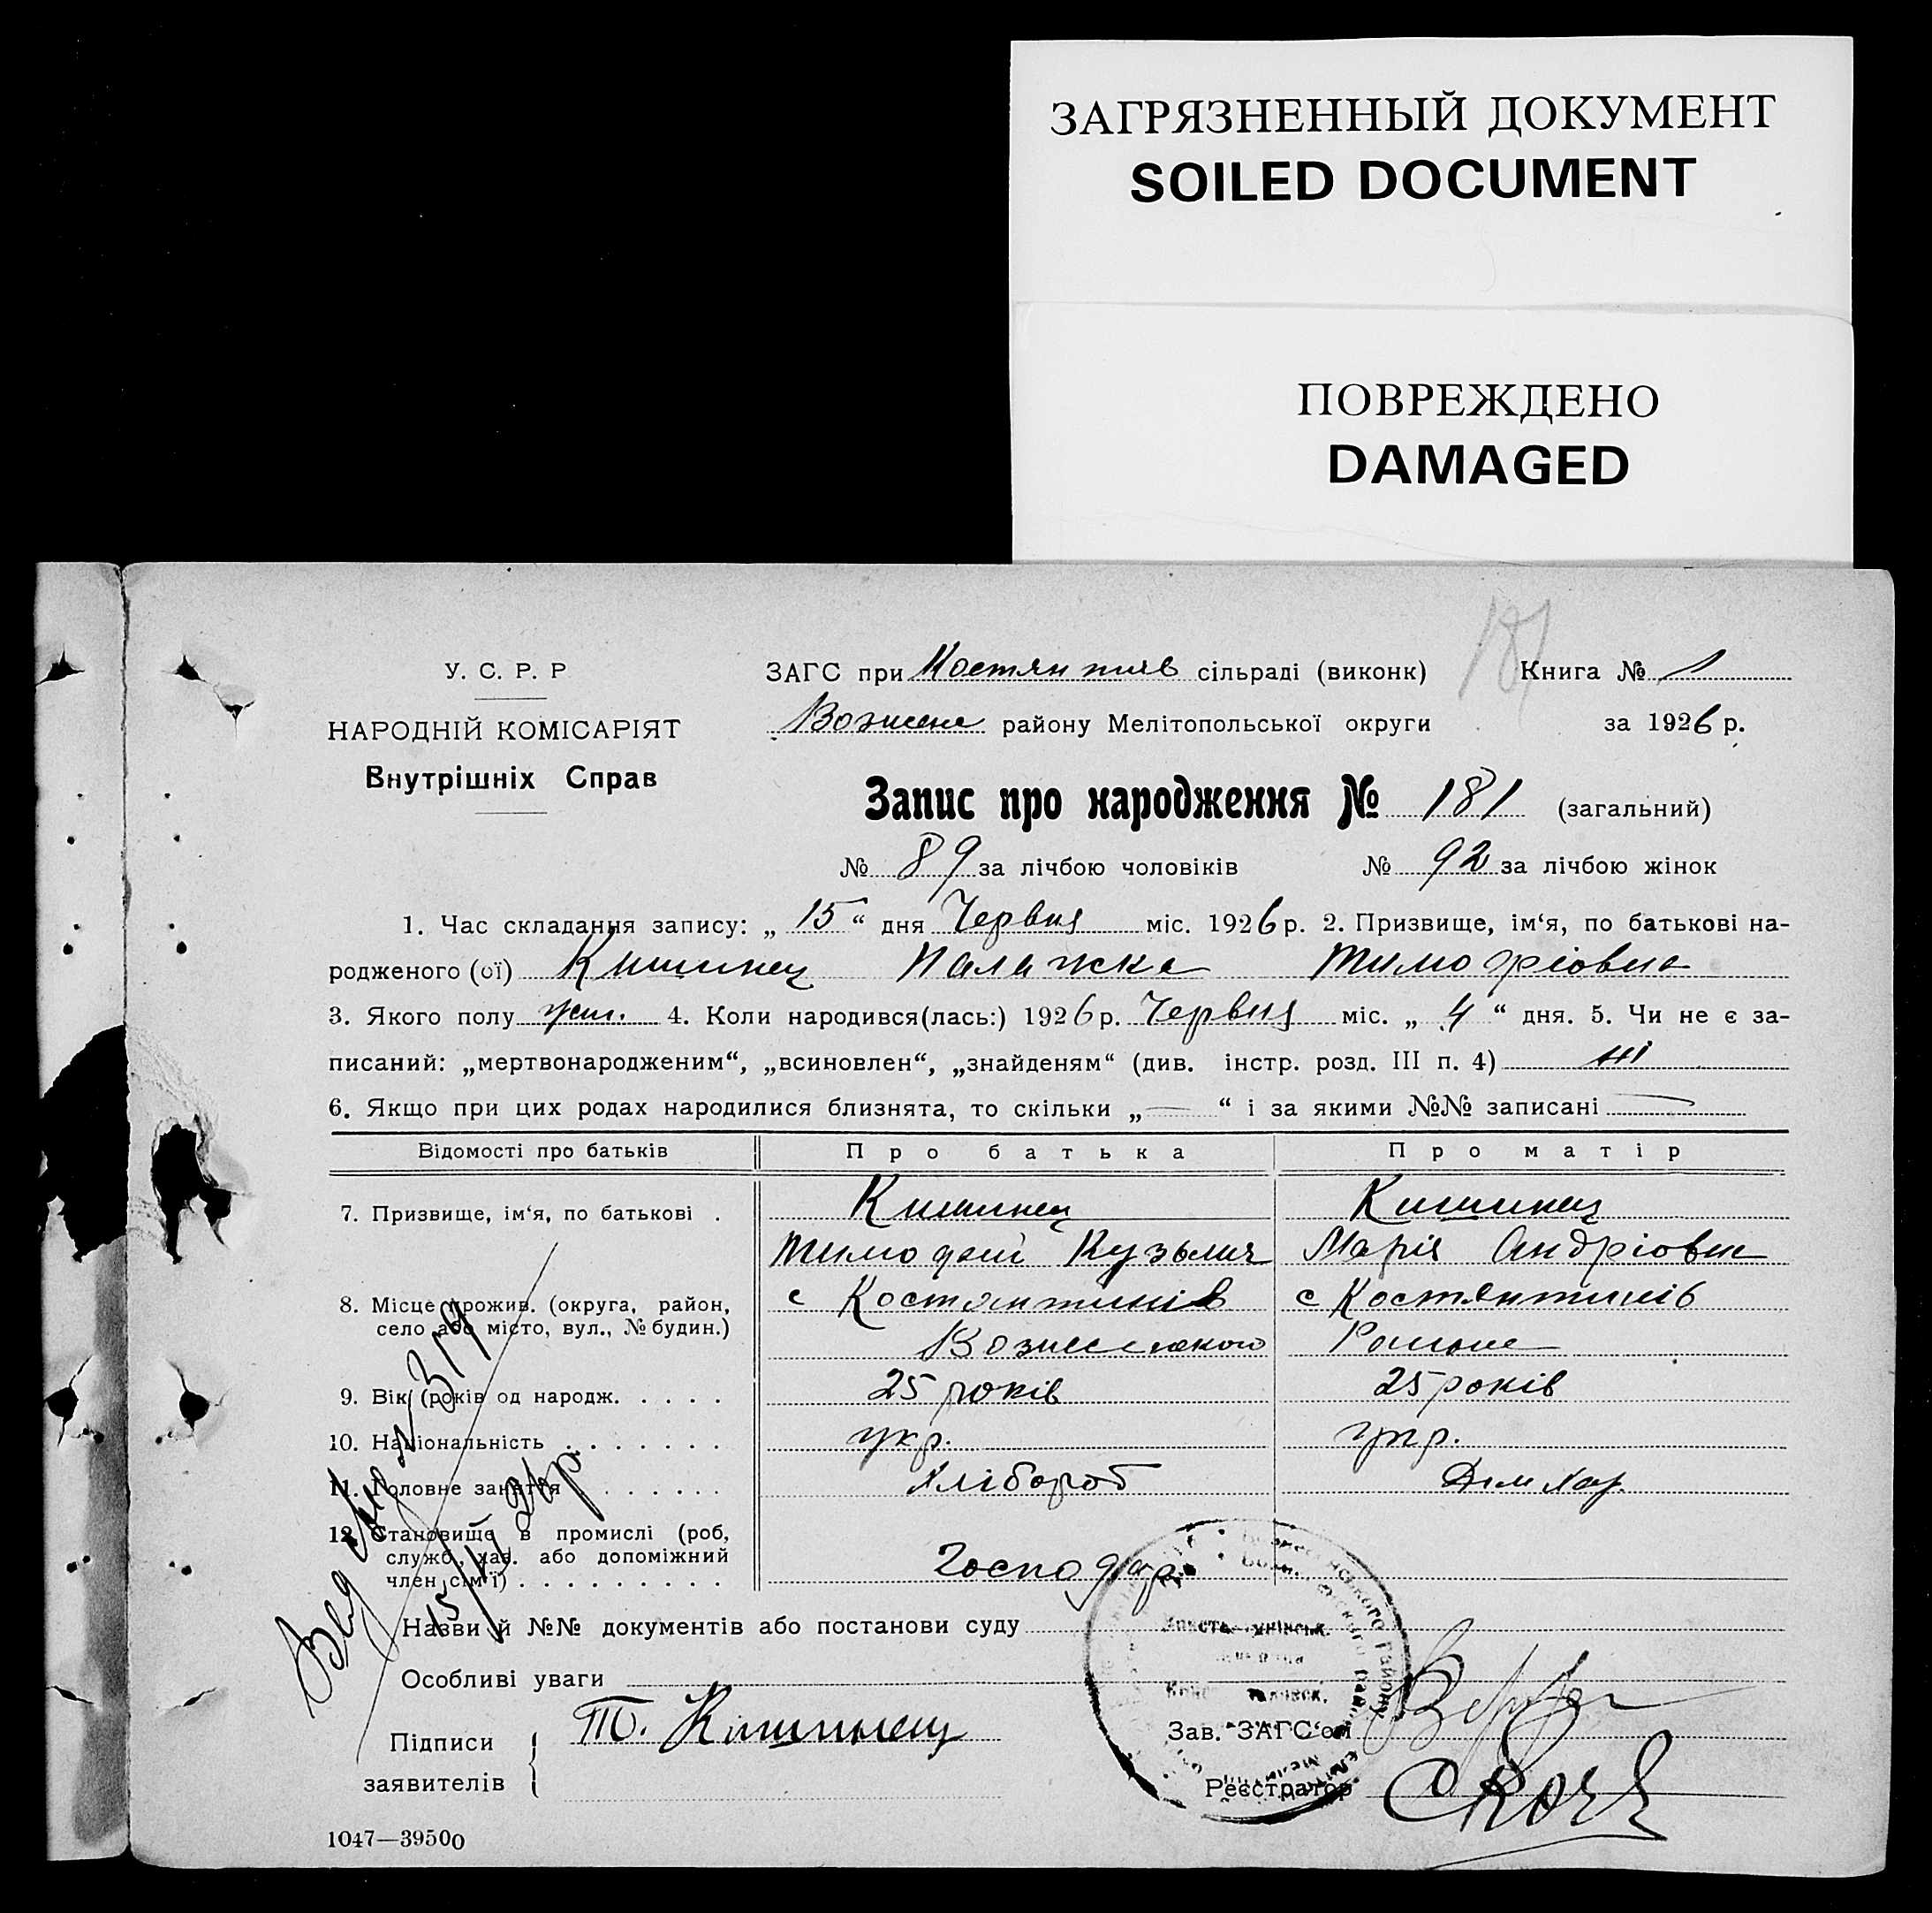 ЗАГРЯЗНЕННЫЙ ДОКУМЕНТ
SOILED DOCUMENT
ПОВРЕЖДЕНО
DAMAGED
181
У. С. Р. Р
НАРОДНІЙ КОМІСАРІЯТ
Внутрішніх Справ
ЗАГС при Костянтинів сільраді (виконк) Книга № 1
Вознесен району Мелітопольської округи за 1926 р.
Запис про народження № 181 (загальний)
№ 89 за лічбою чоловіків № 92 за лічбою жінок
1. Час складання запису: „ 15 “ дня Червня міс. 1926 р. 2. Призвище, ім‘я, по батькові на-
родженого (ої) Кишинец Палажка Тимофіовна
3. Якого полу жін. 4. Коли народився(лась:) 1926 р. Червня міс. „ 4 “ дня. 5. Чи не є за-
писаний: „мертвонародженим“, „всиновлен“, „знайденям“ (див. інстр. розд. III п. 4) ні
6. Якщо при цих родах народилися близнята, то скільки „ — “ і за якими №№ записані —
Відомості про батьків Про батька Про матір
7. Призвище, ім‘я, по батькові . Кишинец Кишинец
Тимофей Кузьмич Марія Андріовна
8. Місце прожив. (округа, район, с Костянтинів с Костянтинів
село або місто, вул., № будин.) Вознесенского Району
9. Вік (років од народж. . . . . 25 років 25 років
10. Національність . . . . . . . укр. укр.
11. Головне заняття . . . . . . . хлібороб Дом хаз.
12. Становище в промислі (роб,
служб., хаз. або допоміжний
член сім‘ї) . . . . . . . . . Господар
Назви й №№ документів або постанови суду
Особливі уваги
Підписи
заявителів
Т. Кишинец
Зав. ЗАГС‘ом
Реєстратор
1047—39500